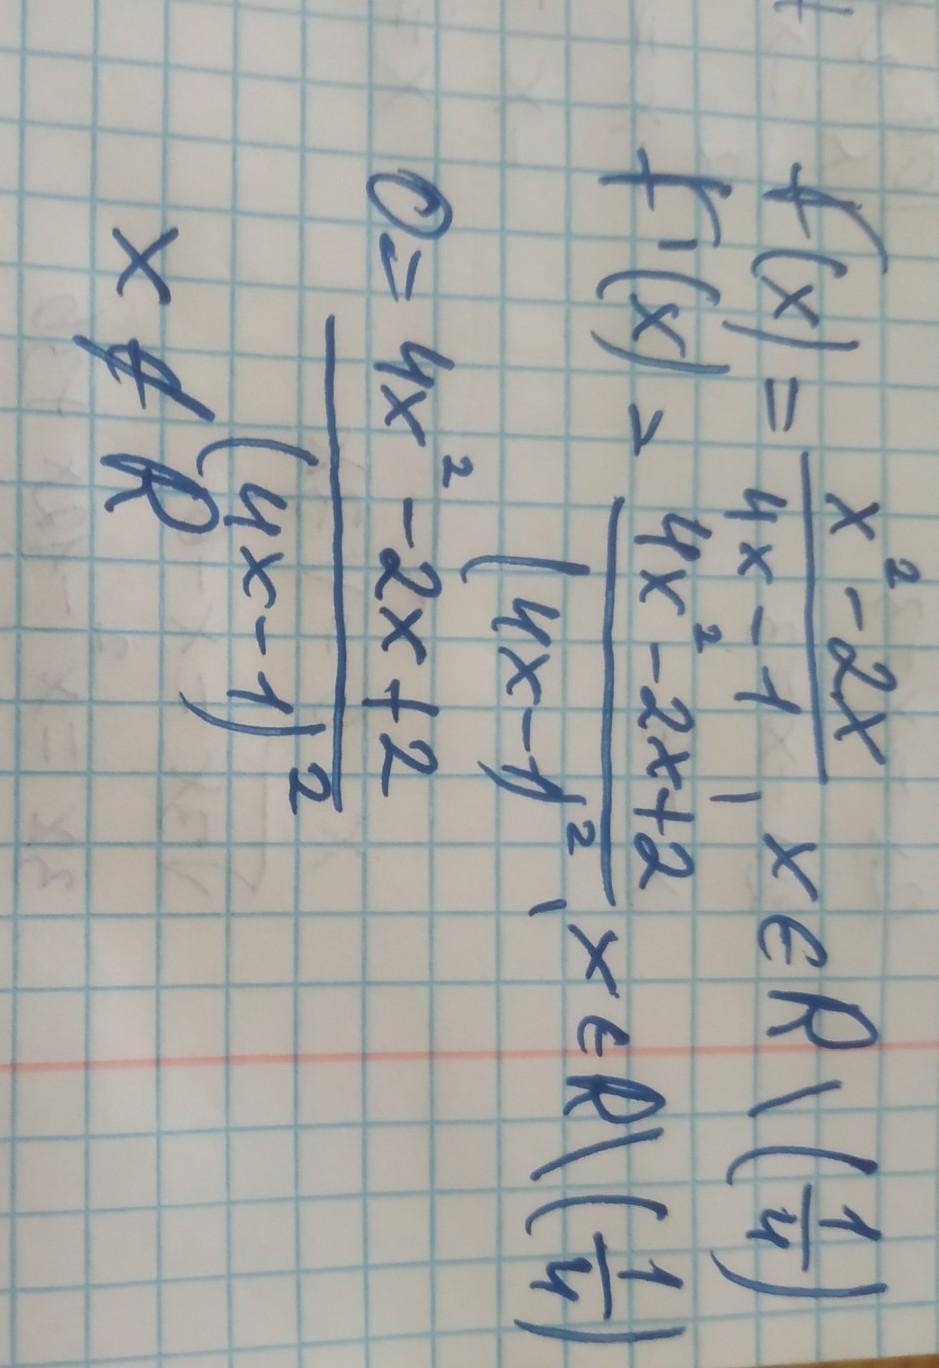 f(x) = x² - 2x / 4x - 1, x ∈ R \ (1/4)
f'(x) = 4x² - 2x + 2 / (4x - 1)², x ∈ R \ (1/4)
0 = 4x² - 2x + 2 / (4x - 1)²
x ∉ R